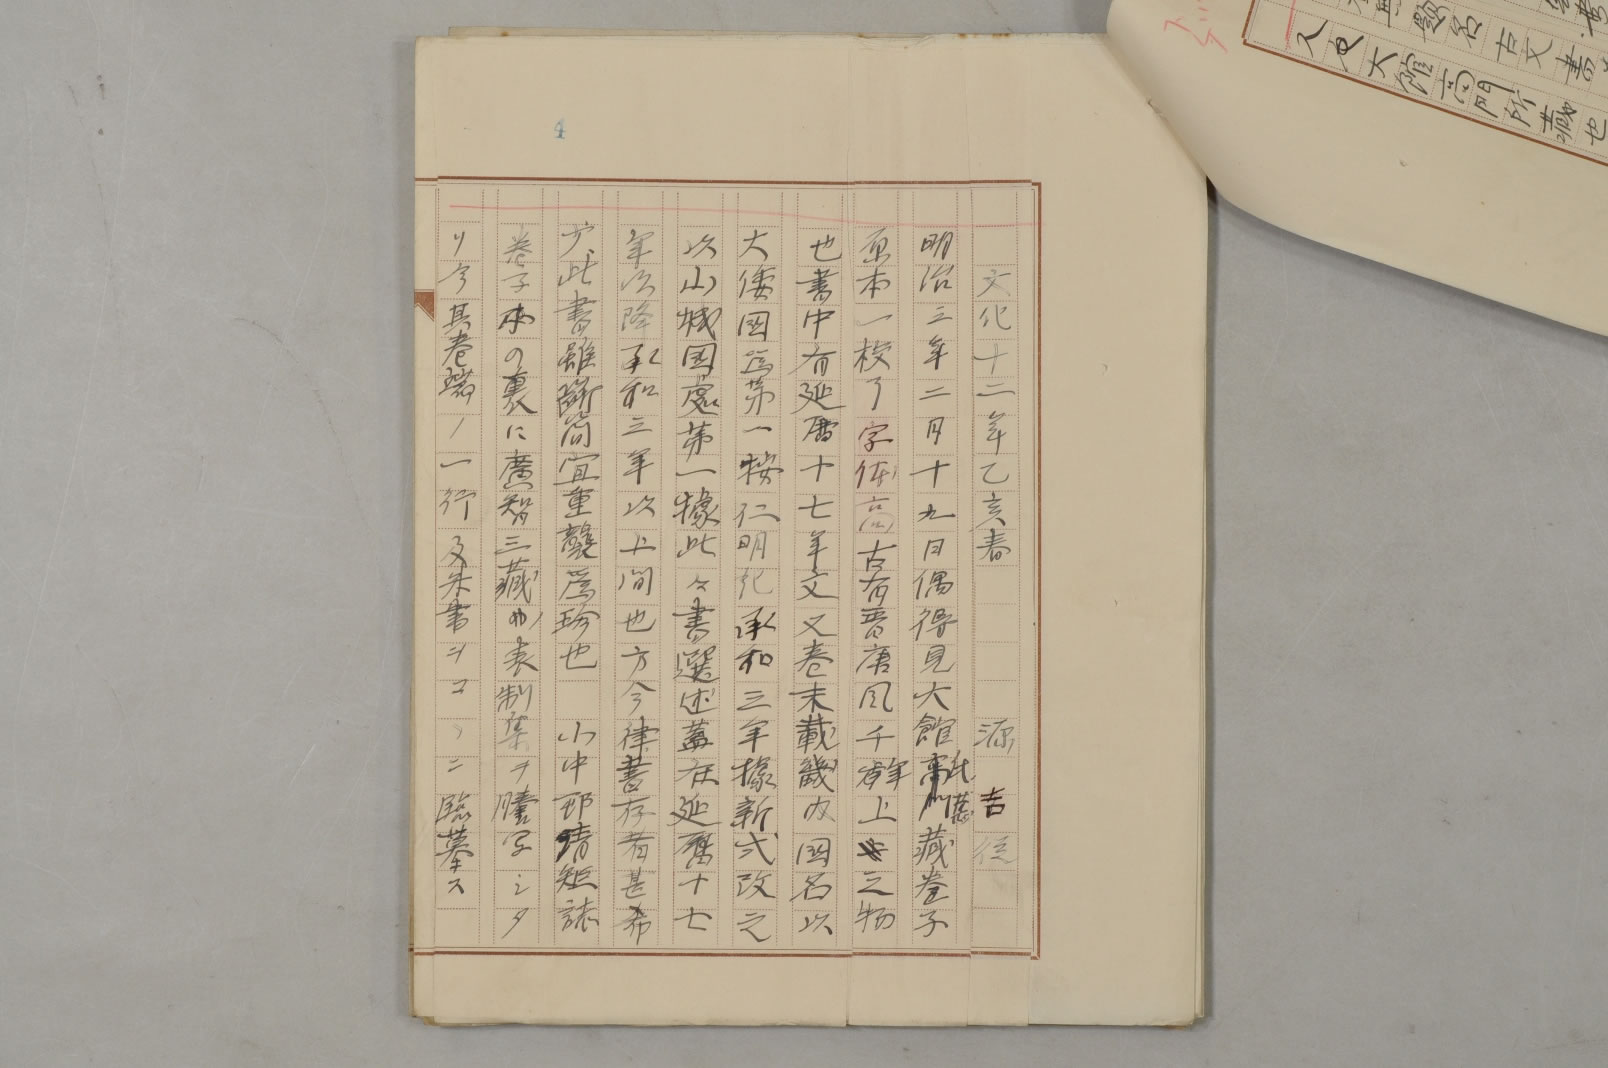 文化十二年乙亥春 源吉従
明治三年二月十九日偶得見大館高門藏卷子
原本一校了字体高古有晋唐風千年上之物
也書中有延暦十七年文又卷末載畿内國名以
大倭國為第一按仁明紀承和三年據新式改之
以山城國處第一據此々書選述蓋在延暦十七
年以降承和三年以上間也方今律書存者甚希
少此書雖断簡宜重襲為珍也 小中邨清矩誌
卷子本の裏に廣智三藏の表制集ヲ謄写シタ
リ今其卷端ノ一行及朱書ヲコヽニ臨摹ス
4
題名古文書
大館高門所藏也